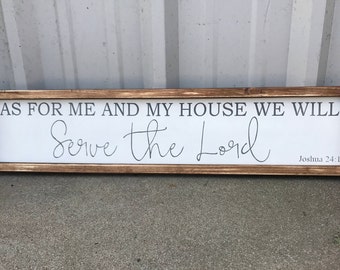 AS FOR ME AND MY HOUSE WE WILL
Serve the Lord
Joshua 24:1